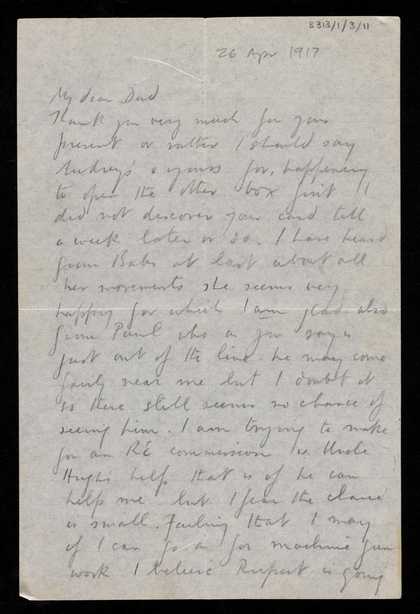 8313/1/3/11
26 Apr 1917
My dear Dad
Thank you very much for your
present or rather I should say
Audrey's & yours for, happening
to open the other box first I
did not discover your card till
a week later or so. I have heard
from Babs at last about all
her movements she seems very
happy for which I am glad also
from Paul who as you say is
just out of the line. he may come
fairly near me but I doubt it
so there still seems no chance of
seeing him. I am trying to make
for an RE commission Uncle
Hugh's help that is if he can
help me but I fear the chance
is small. Failing that I may
if I can go in for machine gun
work I believe Rupert is going